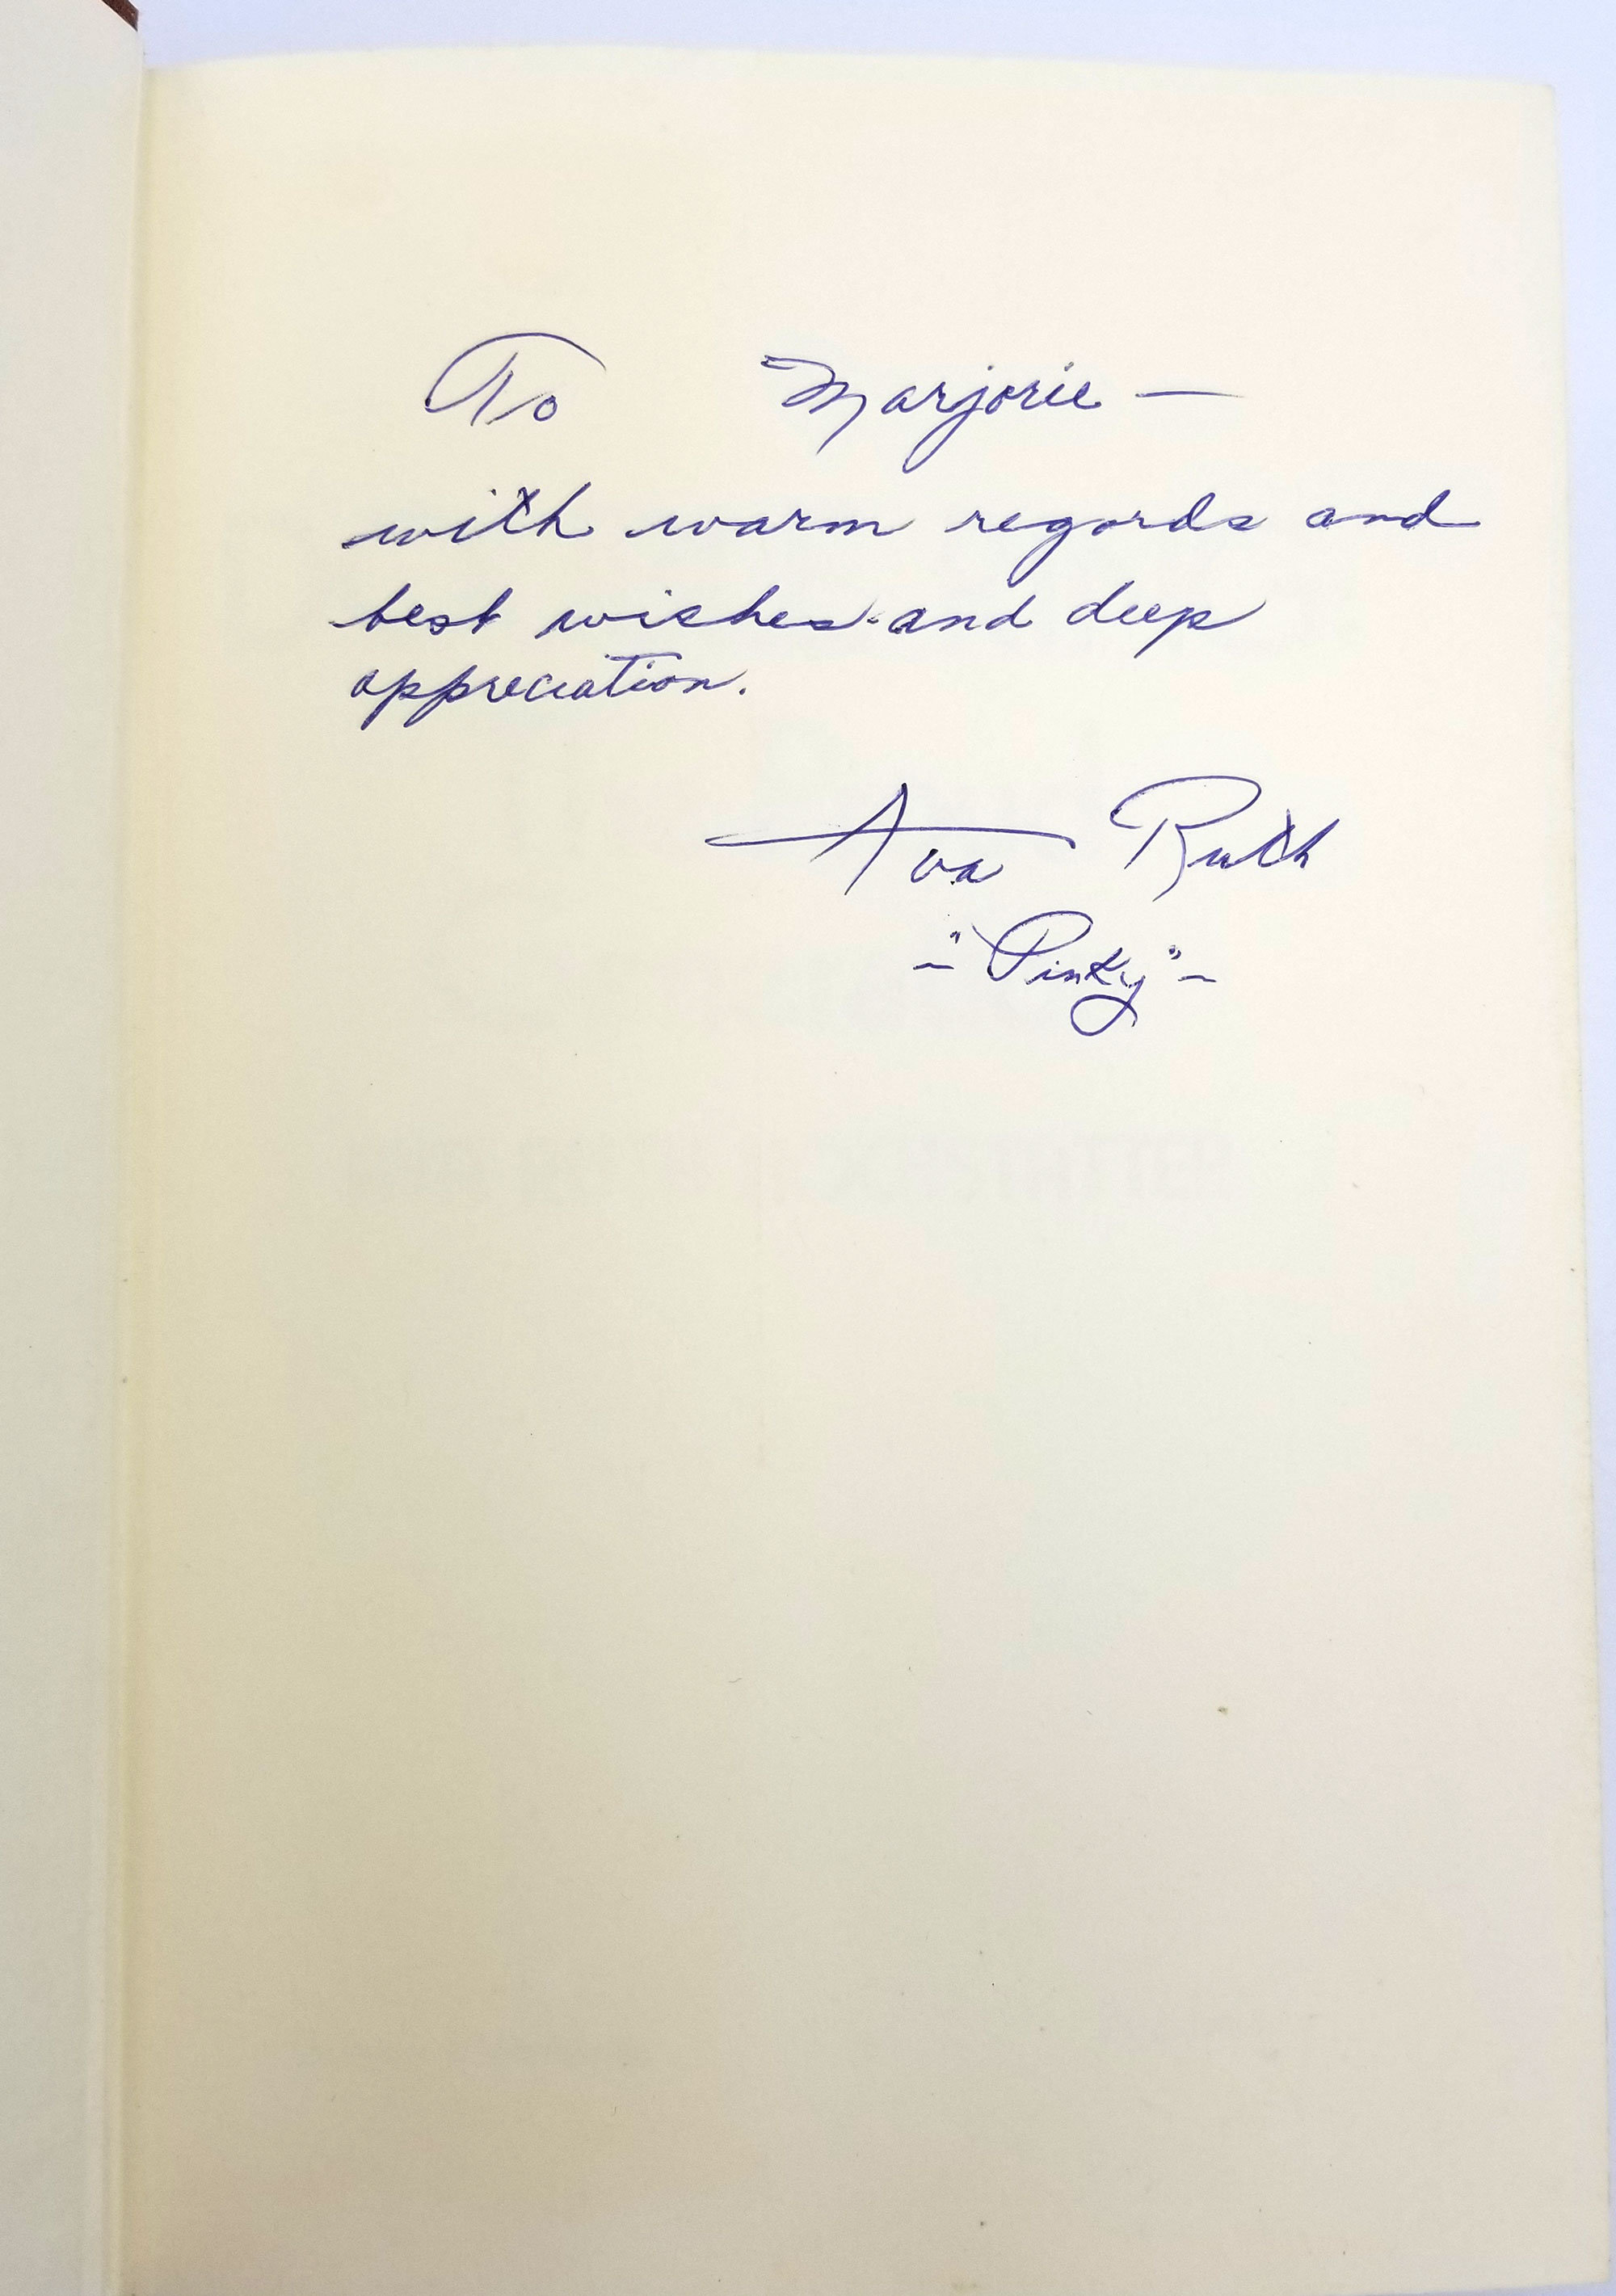 To Marjorie —
with warm regards and
best wishes and deep
appreciation.
Ava Ruth
- "Pinky" -